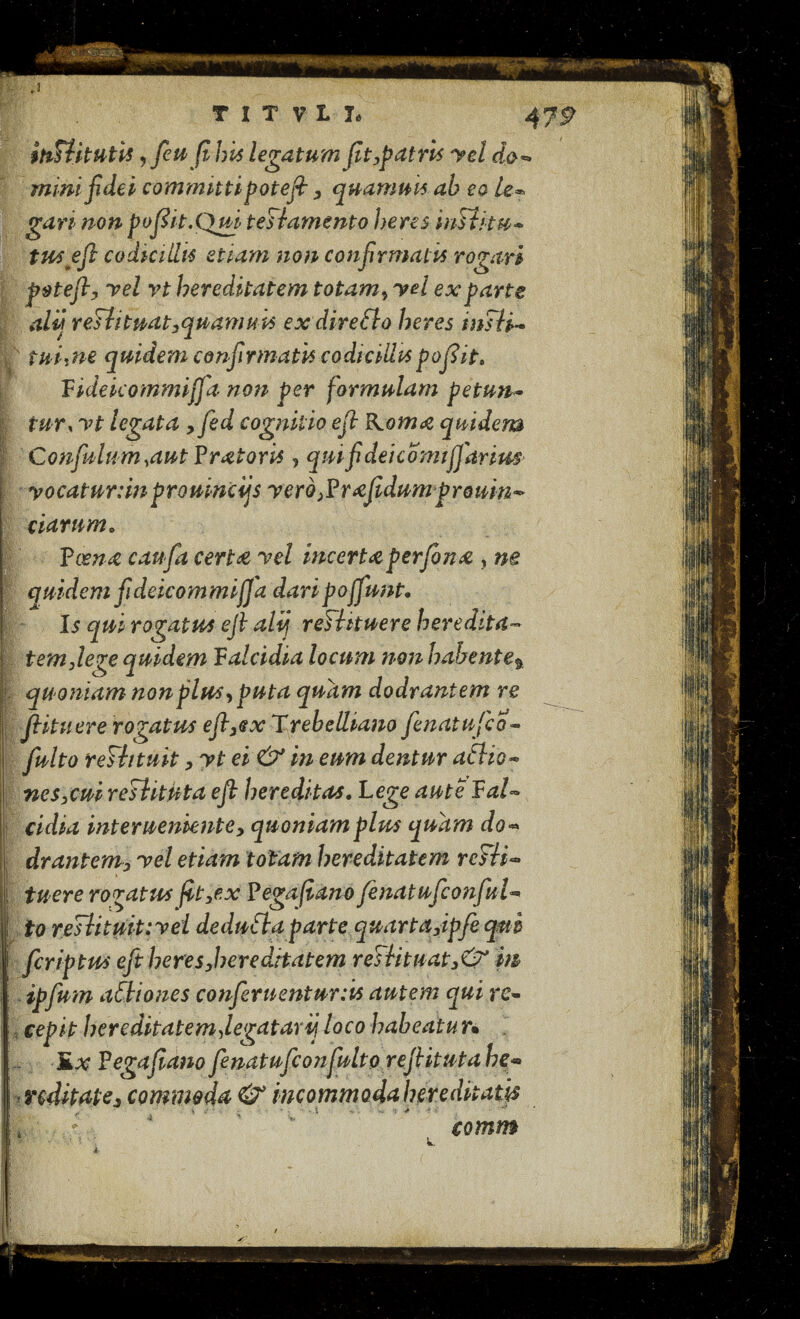 TITVLI. 479
inſtitutis, ſeu ſi his legatum ſit, patris vel do-
mini fidei committi poteſt, quamuis ab eo le-
gari non poſsit. Qui teſtamento heres inſtitu-
tus eſt codicillis etiam non confirmatis rogari
poteſt, vel vt hereditatem totam, vel ex parte
alij reſtituat, quamuis ex directo heres inſti-
tui, ne quidem confirmatis codicillis poſsit.
Fideicommiſſa non per formulam petun-
tur, vt legata, ſed cognitio eſt Romæ quidem
Conſulum, aut Prætoris, qui fideicōmiſſarius
vocatur: in prouincijs verò, Præſidum prouin-
ciarum.
Pœnæ cauſa certæ vel incertæ perſonæ, ne
quidem fideicommiſſa dari poſſunt.
Is qui rogatus eſt alij reſtituere heredita-
tem, lege quidem Falcidia locum non habente,
quoniam non plus, puta quàm dodrantem re
ſtituere rogatus eſt, ex Trebelliano ſenatuſcō-
ſulto reſtituit, vt ei & in eum dentur actio-
nes, cui reſtituta eſt hereditas. Lege autē Fal-
cidia interueniente, quoniam plus quàm do-
drantem, vel etiam totam hereditatem reſti-
tuere rogatus ſit, ex Pegaſiano ſenatuſconſul-
to reſtituit: vel deducta parte quarta, ipſe qui
ſcriptus eſt heres, hereditatem reſtituat, & in
ipſum actiones conſeruentur: is autem qui re-
cepit hereditatem, legatarij loco habeatur.
Ex Pegaſiano ſenatuſconſulto reſtituta he-
reditate, commoda & incommoda hereditatis
comm